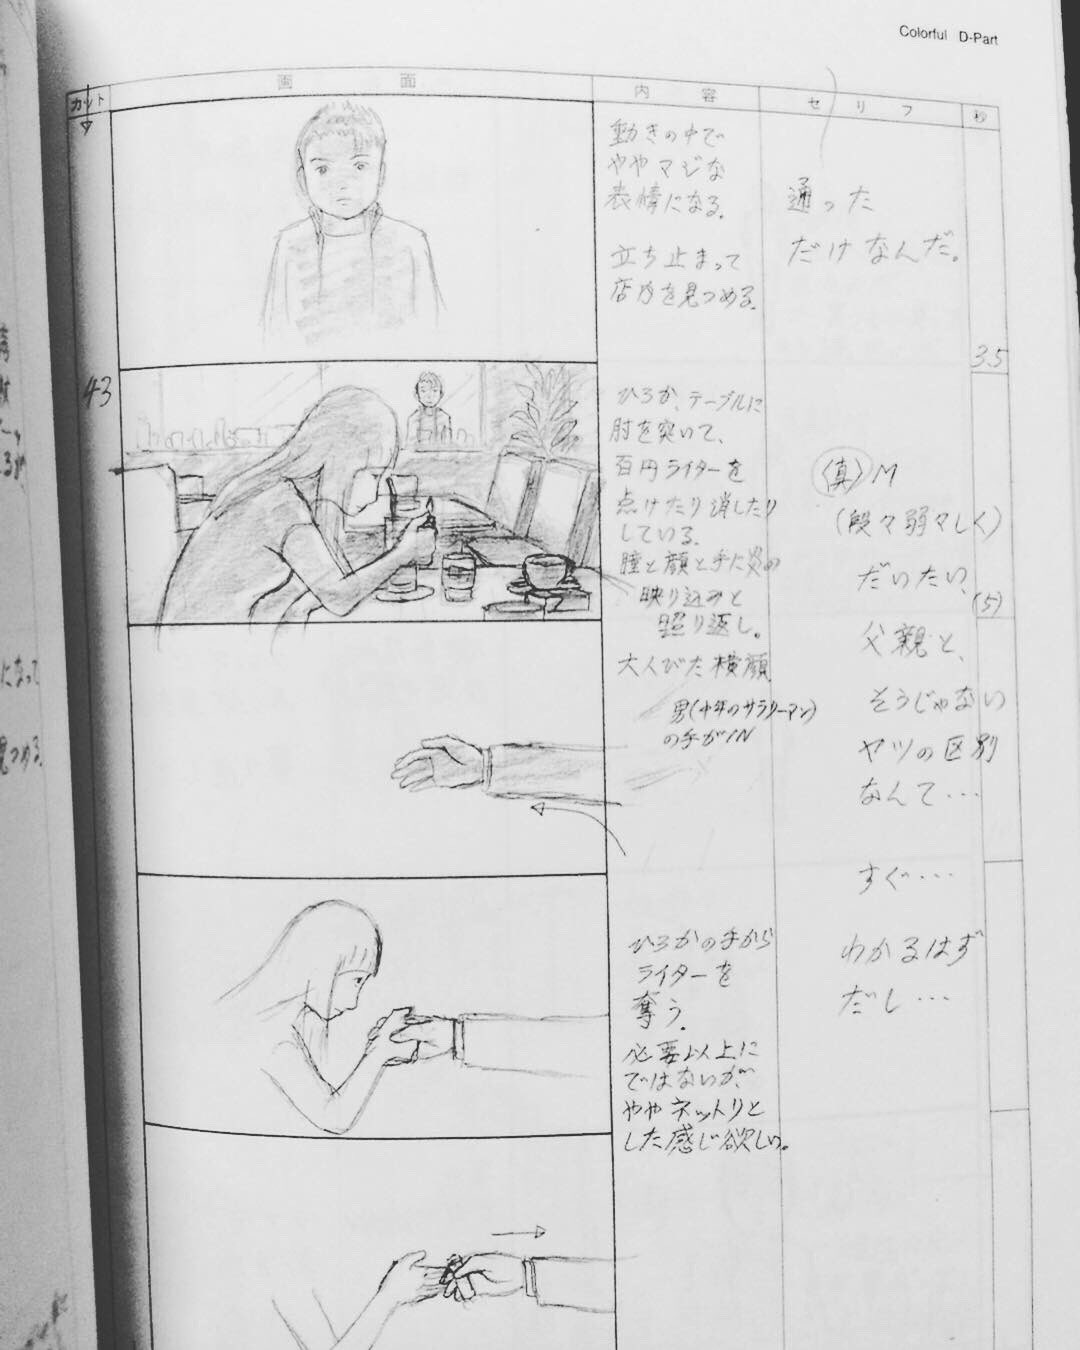 Colorful D-Part
カット
画面
内容
セリフ
秒
動きの中で
ややマジな
表情になる。
立ち止まって
店内を見つめる。
通った
だけなんだ。
3.5
43
ひろか、テーブルに
肘を突いて、
百円ライターを
点けたり消したり
している。
瞳と顔と手に炎の
映り込みと
照り返し。
大人びた横顔
男(中年のサラリーマン)
の手がIN
〈真〉M
(段々弱々しく)
だいたい、
(5)
父親と、
そうじゃない
ヤツの区別
なんて…
すぐ…
わかるはず
だし…
ひろかの手から
ライターを
奪う。
必要以上に
ではないが、
ややネットリと
した感じ欲しい。
になって
見つめる。